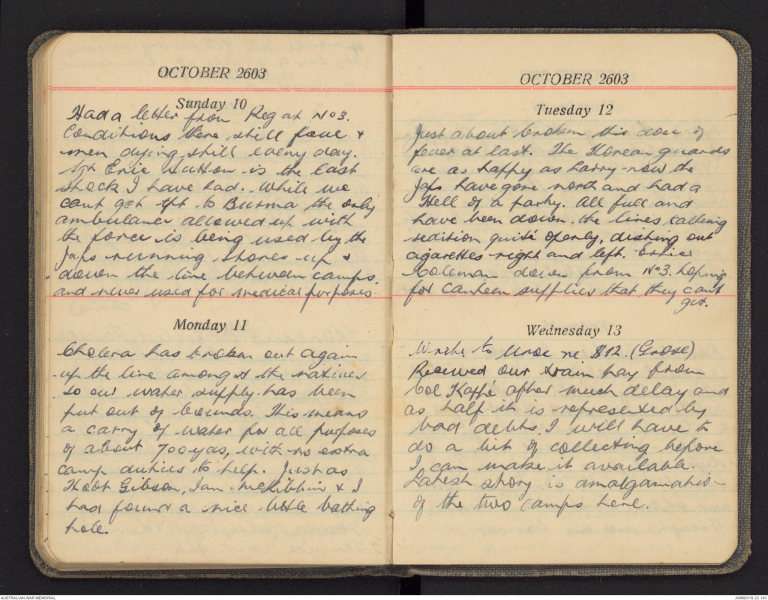 OCTOBER 2603
Sunday 10
Had a letter from Reg at No 3.
Conditions there still foul &
men dying still every day.
Sgt Eric Hutton is the last
shock I have had. While we
cant get off to Burma the only
ambulance allowed up with
the force is being used by the
Japs running stores up &
down the line between camps.
and never used for medical purposes
Monday 11
Cholera has broken out again
up the line amongst the natives
so our water supply has been
put out of bounds. This means
a carry of water for all purposes
of about 700 yds, with no extra
camp duties to help. Just as
Gibson, Ian McKibbin & I
had found a nice little bathing
hole.
OCTOBER 2603
Tuesday 12
Just about broken this dose of
fever at last. The Korean guards
are as happy as harry now the
Japs have gone north and had a
Hell of a party. All full and
have been down the lines talking
sedition quite openly, dishing out
cigarettes right and left. Ernie
Coleman down from No 3. hoping
for canteen supplies that they cant
get.
Wednesday 13
Write to re 812. (Grose)
Received our train pay from
Col Kappé after much delay and
as half it is represented by
bad debts I will have to
do a bit of collecting before
I can make it available.
Latest story is amalgamation
of the two camps here.
AUSTRALIAN WAR MEMORIAL